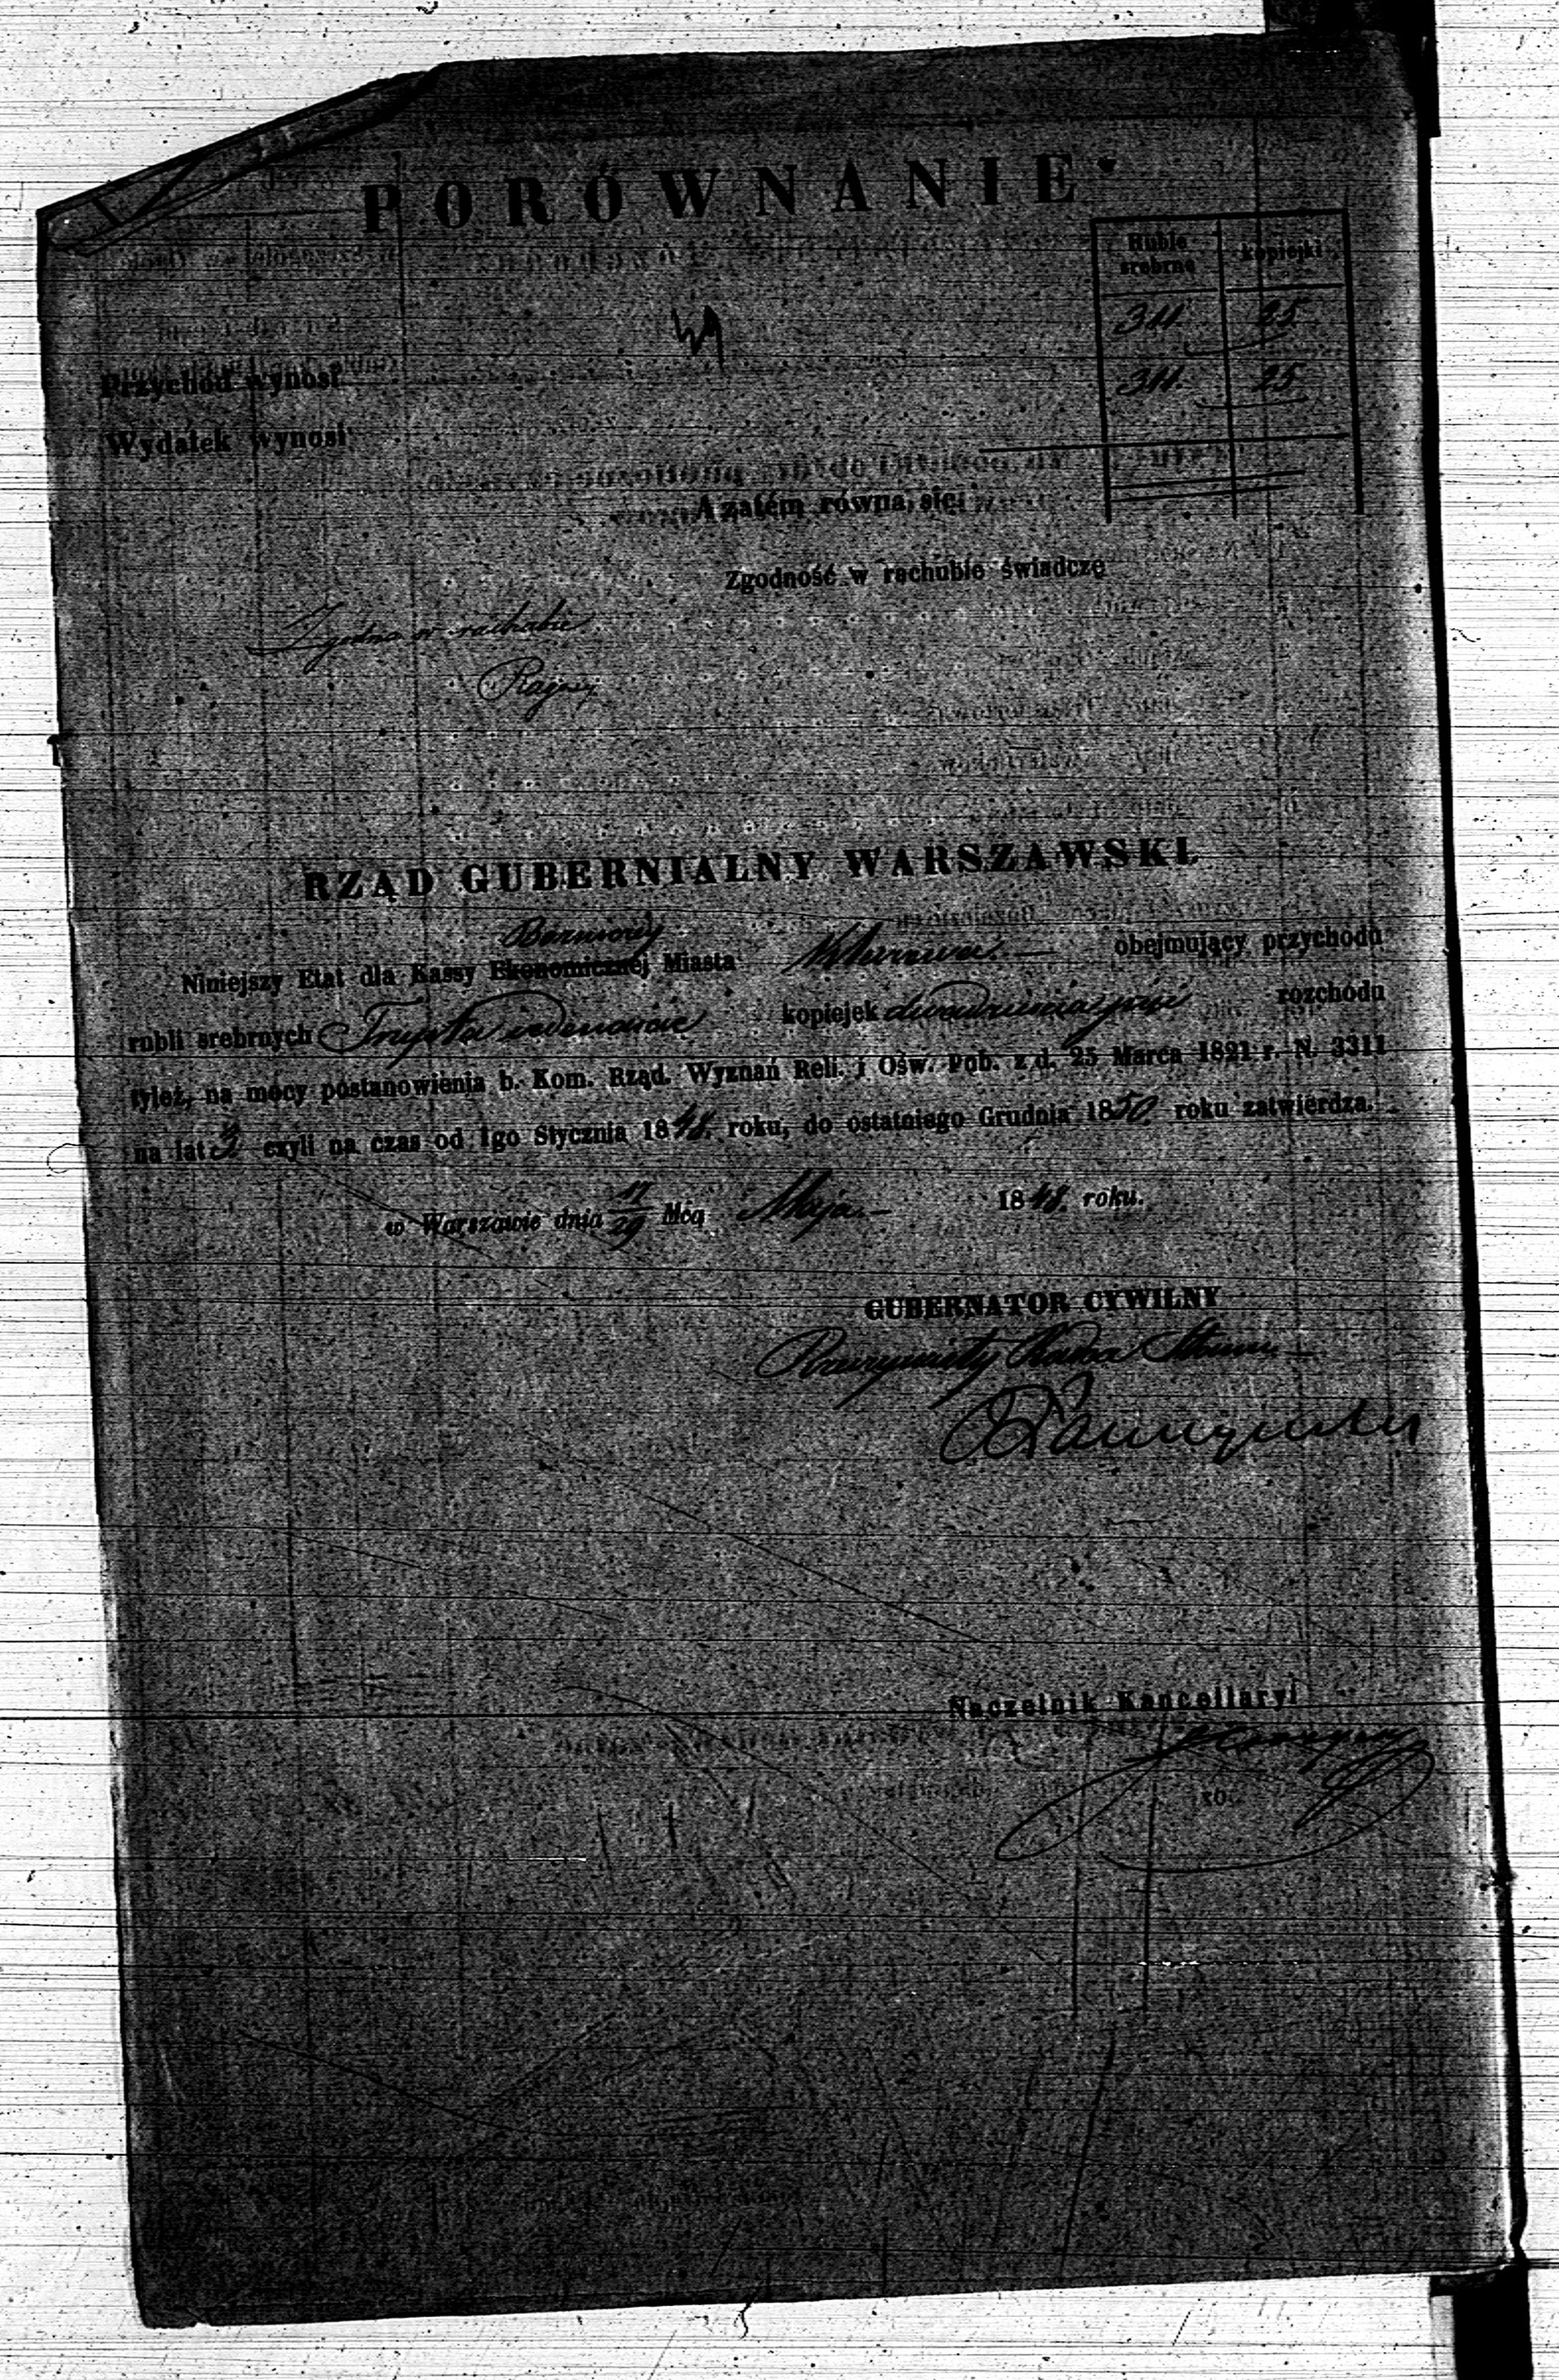 PORÓWNANIE.
Ruble srebrne kopiejki
311. 25
Przychód wynosi
311. 25
Wydatek wynosi
A zatém równa się
Zgodność w rachubie świadczę
Zgodno w rachubie
RZĄD GUBERNIALNY WARSZAWSKI.
Bożniczéj
Niniejszy Etat dla Kassy Ekonomicznéj Miasta obejmujący przychodu
rubli srebrnych Trzysta jedenaście kopiejek dwadzieściapięć rozchodu
tyleż, na mocy postanowienia b. Kom. Rząd. Wyznań Reli. i Ośw. Pub. z d. 25 Marca 1821 r. N. 3311
na lat 3 czyli na czas od 1go Stycznia 1848. roku, do ostatniego Grudnia 1850. roku zatwierdza.
w Warszawie dnia 17/29 Mca Maja 1848. roku.
GUBERNATOR CYWILNY
Rzeczywisty Radca Stanu
Naczelnik Kancellaryi